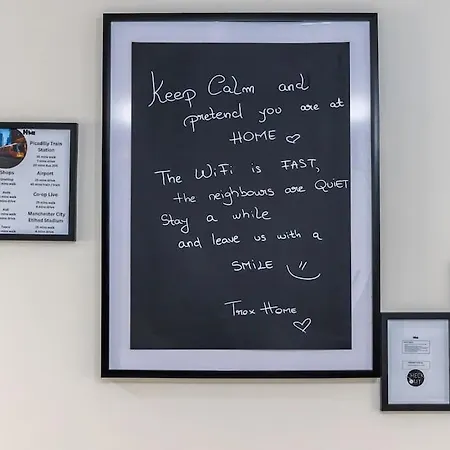 Keep Calm and
pretend you are at
HOME
The WiFi is FAST,
the neighbours are QUIET
Stay a while
and leave us with a
SMILE
Tnox HOME
Picadilly Train
Station
Shops
Airport
Co-op Live
Manchester City
Etihad Stadium
CHECK
OUT